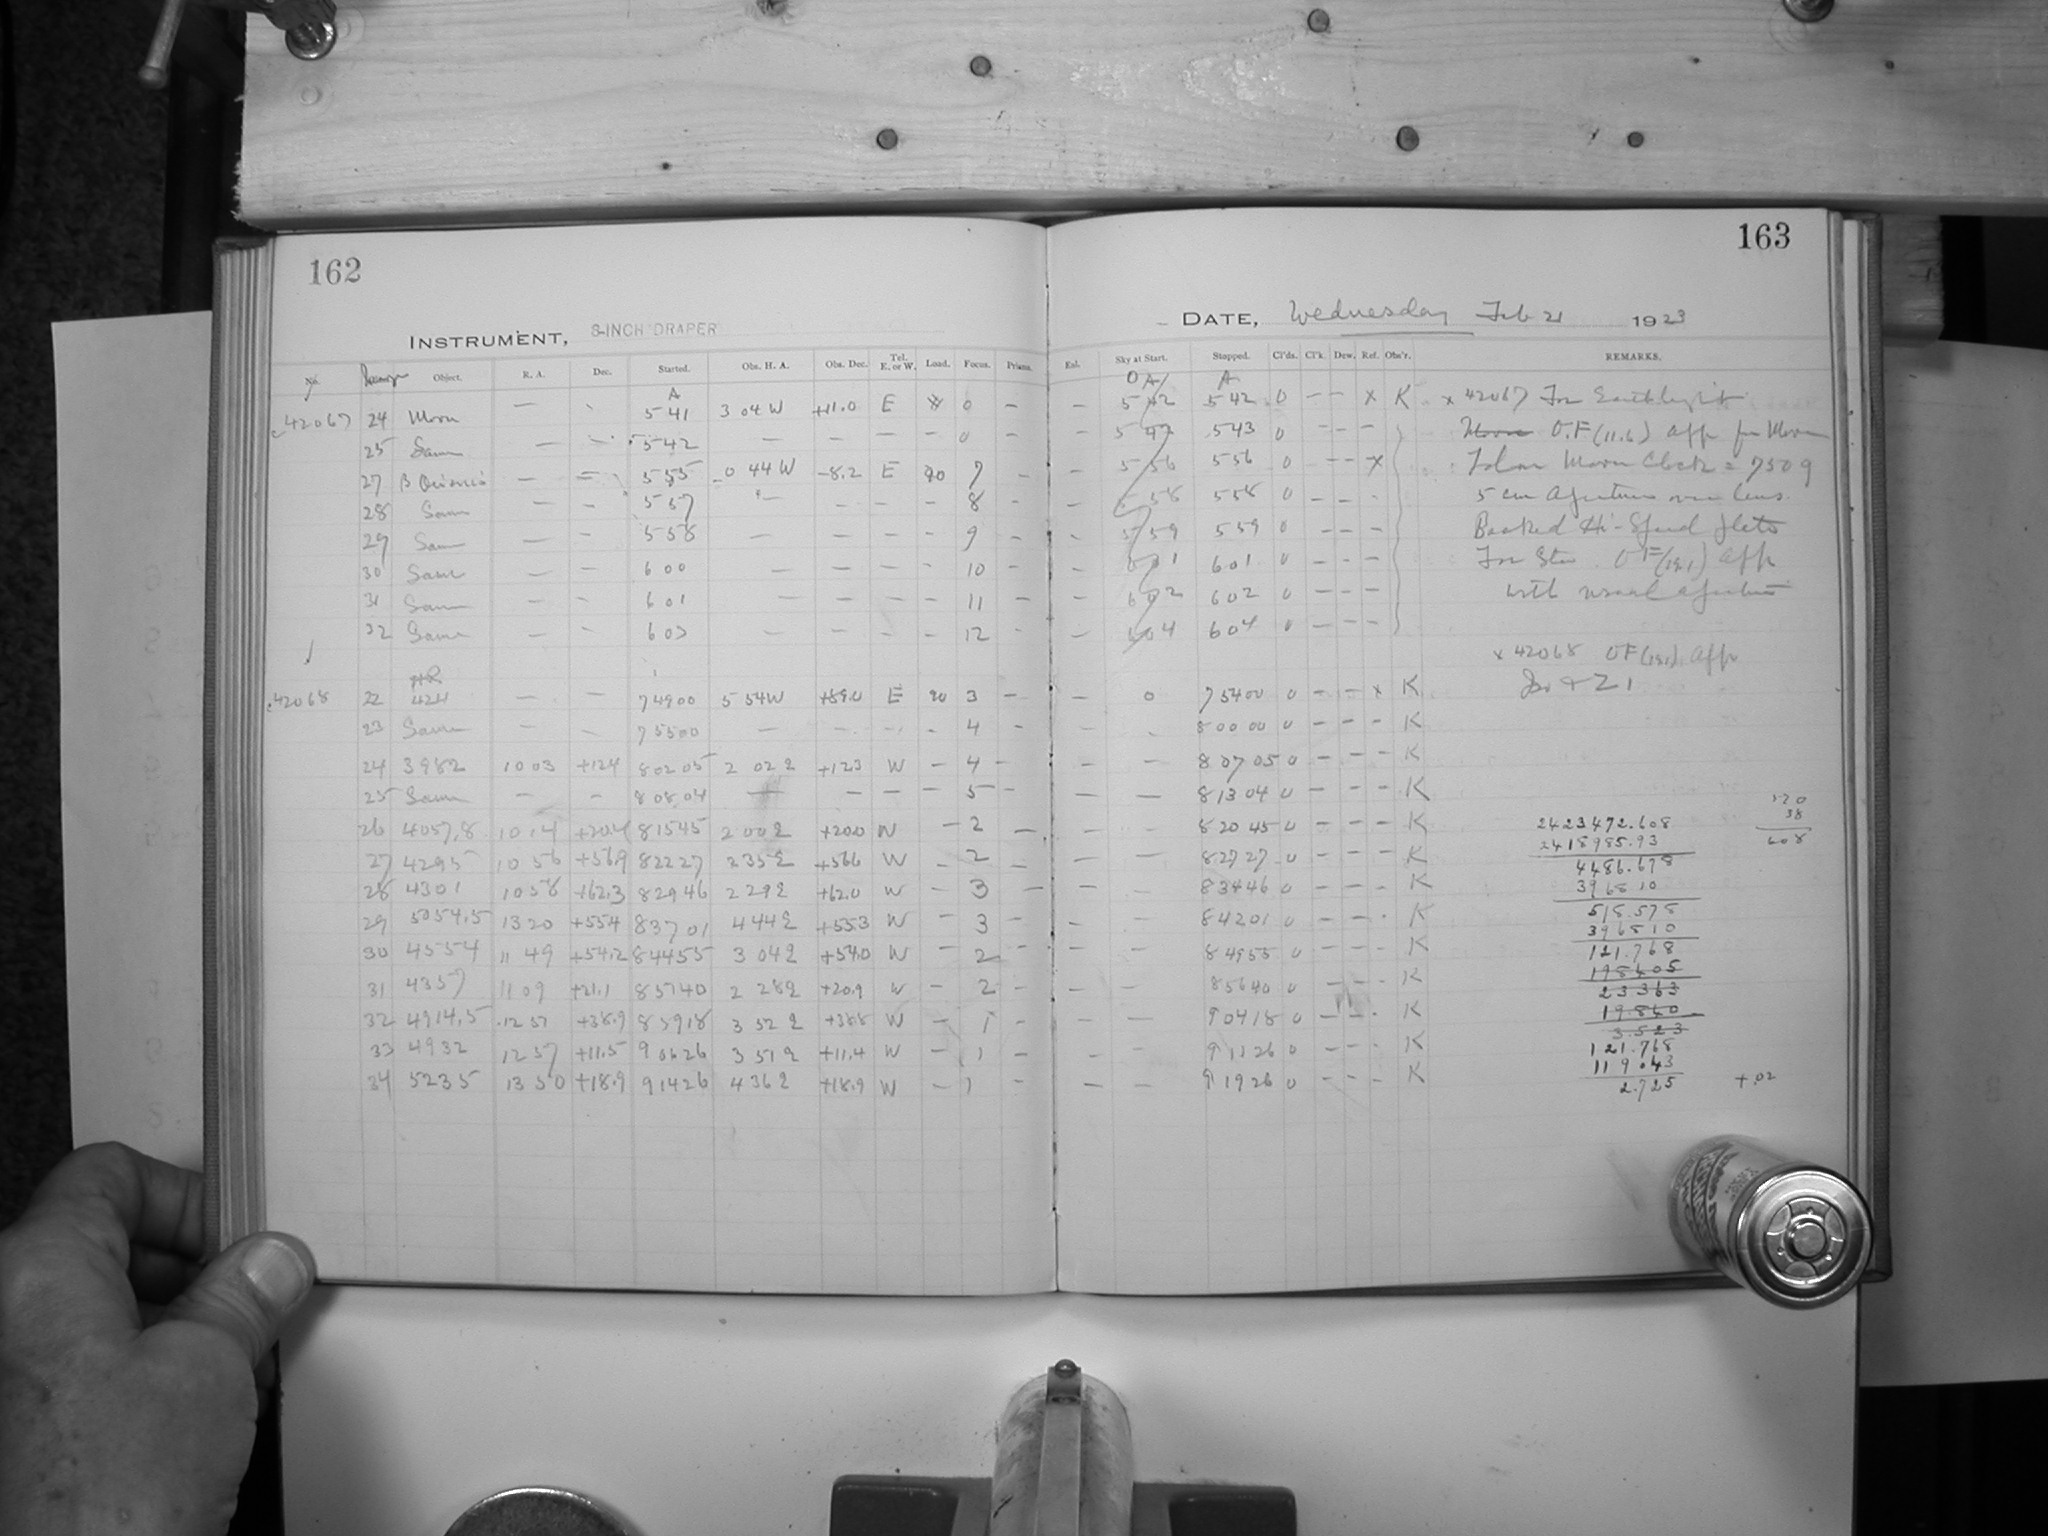 162
INSTRUMENT, 8-INCH DRAPER
No. Object. R. A. Dec. Started. Obs. H. A. Obs. Dec. Tel. E. or W. Load. Focus. Prisms.
A
42067 24 Moon — - 5 41 3 04 W +11.0 E 0 —
25 Same — — 5 42 — — — — 0 —
27 β Orionis — — 5 55 0 44 W −8.2 E 20 7 —
28 Same — — 5 57 — — — — 8 —
29 Same — — 5 58 — — — — 9 —
30 Same — — 6 00 — — — — 10 —
31 Same — — 6 01 — — — — 11 —
32 Same — — 6 03 — — — — 12 —
HR
42068 22 424 — — 7 49 00 5 54 W +89.0 E 20 3 —
23 Same — — 7 55 00 — — - - 4 —
24 3982 10 03 +12.4 8 02 05 2 02 E +12.3 W — 4 —
25 Same — — 8 08 04 — — — — 5 —
26 4057,8 10 14 +20.4 8 15 45 2 00 E +20.0 W — 2 —
27 4295 10 56 +56.9 8 22 27 2 35 E +56.6 W — 2 —
28 4301 10 58 +62.3 8 29 46 2 29 E +62.0 W — 3 —
29 5054,5 13 20 +55.4 8 37 01 4 44 E +55.3 W — 3 —
30 4554 11 49 +54.2 8 44 55 3 04 E +54.0 W — 2 —
31 4357 11 09 +21.1 8 51 40 2 28 E +20.9 W — 2 —
32 4914,5 12 51 +38.9 8 59 18 3 52 E +38.8 W — 1 —
33 4932 12 57 +11.5 9 06 26 3 51 E +11.4 W — 1 —
34 5235 13 50 +18.9 9 14 26 4 36 E +18.9 W — 1 —
163
DATE, Wednesday Feb 21 1923
Exl. Sky at Start. Stopped. Cl'ds. Cl'k. Dew. Ref. Obs'r. REMARKS.
0 A A
— 5 42 5 42 0 — — x K x 42067 For Earthlight
— 5 43 5 43 0 - - - Moon O.F (11.6) app for Moon
— 5 56 5 56 0 — — x Moon Clock = 7509
— 5 58 5 58 0 — — - 5 cm Aperture over lens.
— 5 59 5 59 0 — — — Hi-Speed plate
- 6 01 6 01 0 — — — For Star O F (19.1) app
— 6 02 6 02 0 — — — with usual aperture
— 6 04 6 04 0 — — —
x 42068 O F (19.1) app
— 0 7 54 00 0 — — x K
— - 8 00 00 0 — — — K
— — 8 07 05 0 — — — K
— — 8 13 04 0 — — — K
— — 8 20 45 0 — — — K
— — 8 27 27 0 — — — K
— — 8 34 46 0 — — — K
— — 8 42 01 0 — — - K
— — 8 49 55 0 — — — K
— — 8 56 40 0 — — — K
— — 9 04 18 0 — — - K
— — 9 11 26 0 — — - K
— — 9 19 26 0 — — — K
2423472.608
2418985.93
4486.678
3968 10
518.578
3968 10
121.768
198405
23363
19.840
3.523
121.768
119 043
2.725 +.02
38
608